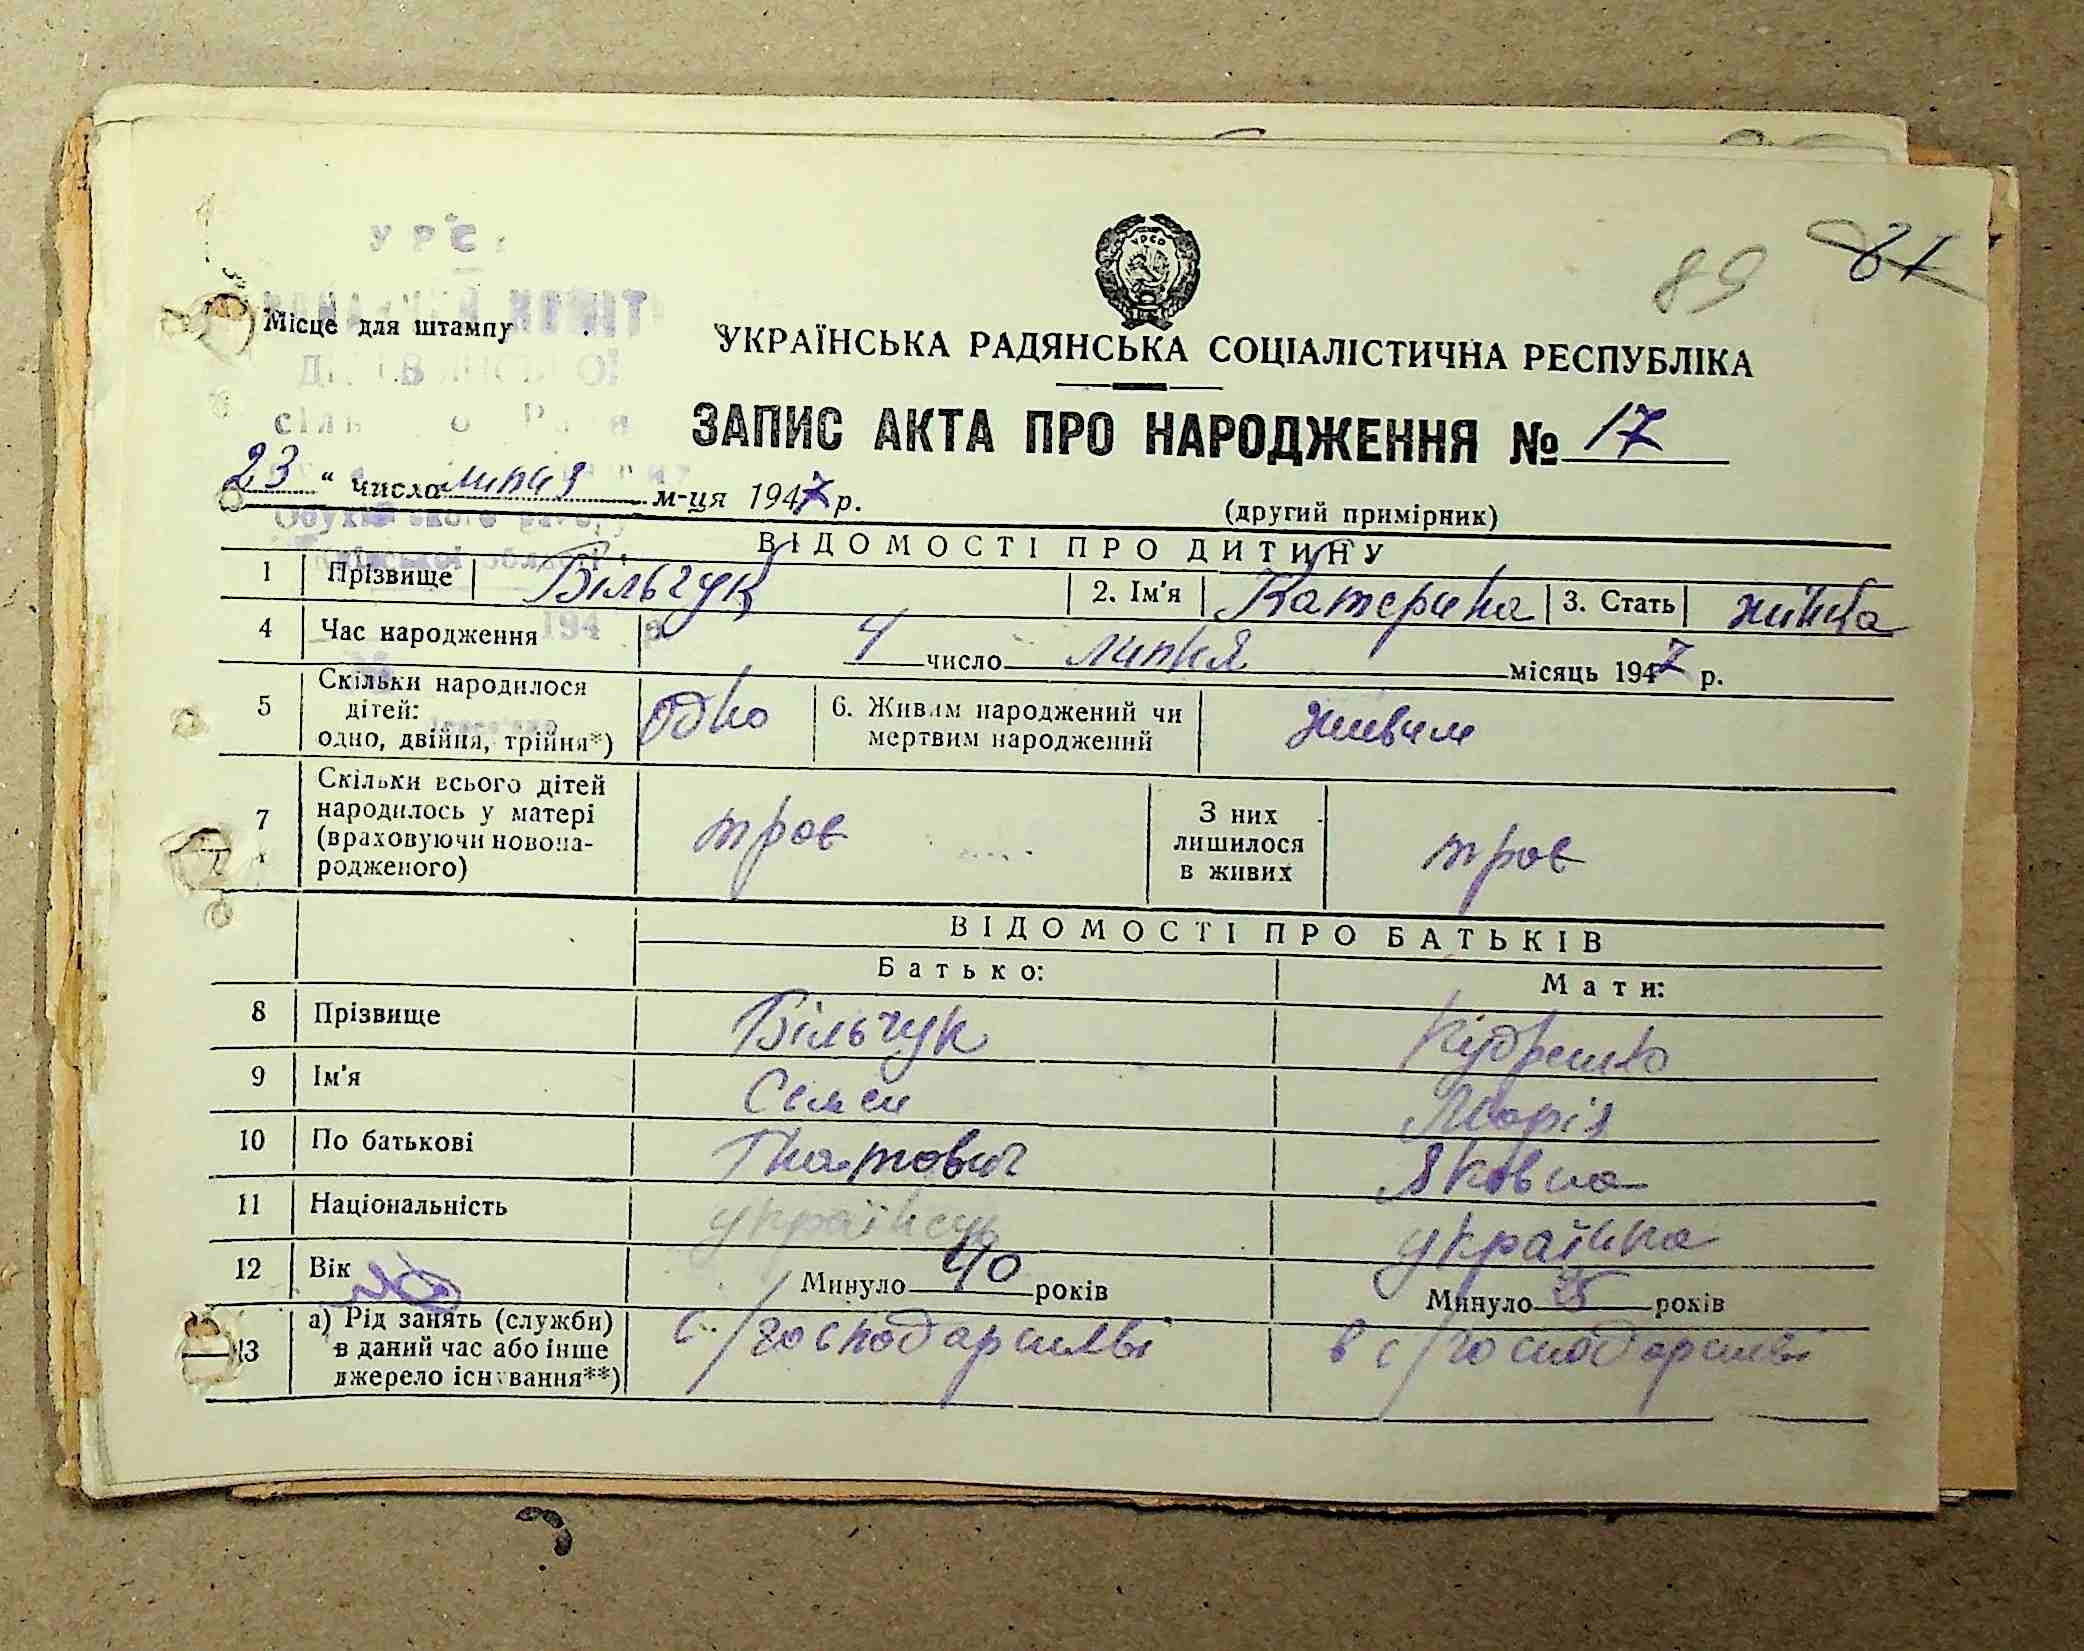 УРСР
89 81
Місце для штампу
УКРАЇНСЬКА РАДЯНСЬКА СОЦІАЛІСТИЧНА РЕСПУБЛІКА
ЗАПИС АКТА ПРО НАРОДЖЕННЯ № 17
23 " число липня м-ця 1947 р.
(другий примірник)
Обухівського району
Київської області
ВІДОМОСТІ ПРО ДИТИНУ
1 Прізвище Більчук 2. Ім'я Катерина 3. Стать жінка
194 р.
4 Час народження 4 число липня місяць 1947 р.
5 Скільки народилося дітей: одно, двійня, трійня*) одно 6. Живим народжений чи мертвим народжений живим
7 Скільки всього дітей народилось у матері (враховуючи новонародженого) троє З них лишилося в живих троє
ВІДОМОСТІ ПРО БАТЬКІВ
Батько: Мати:
8 Прізвище Більчук
9 Ім'я Семен Марія
10 По батькові Гнатович Яковна
11 Національність українець українка
12 Вік Минуло 40 років Минуло 35 років
13 а) Рід занять (служби) в даний час або інше джерело існування**) с/господарстві в с/господарстві